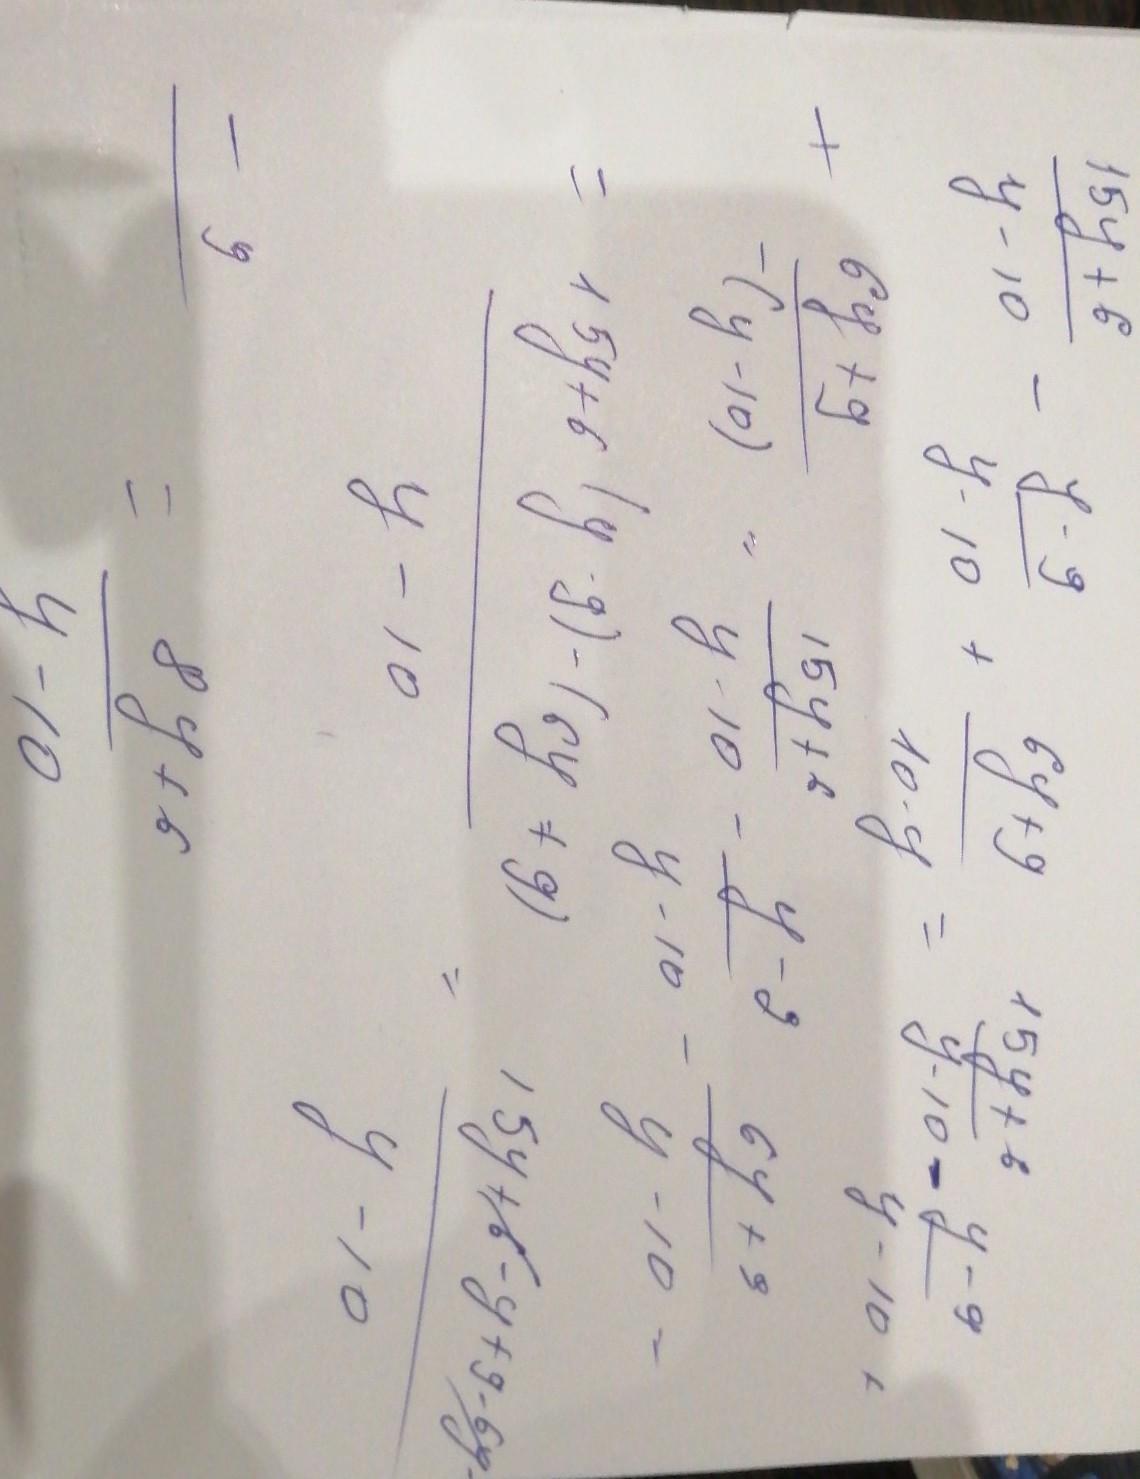 15y+6/y-10 - y-9/y-10 + 6y+9/10-y = 15y+6/y-10 - y-9/y-10 +
+ 6y+9/-(y-10) = 15y+6/y-10 - y-9/y-10 - 6y+9/y-10 =
= 15y+6(y-9)-(6y+9)/y-10 = 15y+6-y+9-6y-/y-10
-9 = 8y+6/y-10